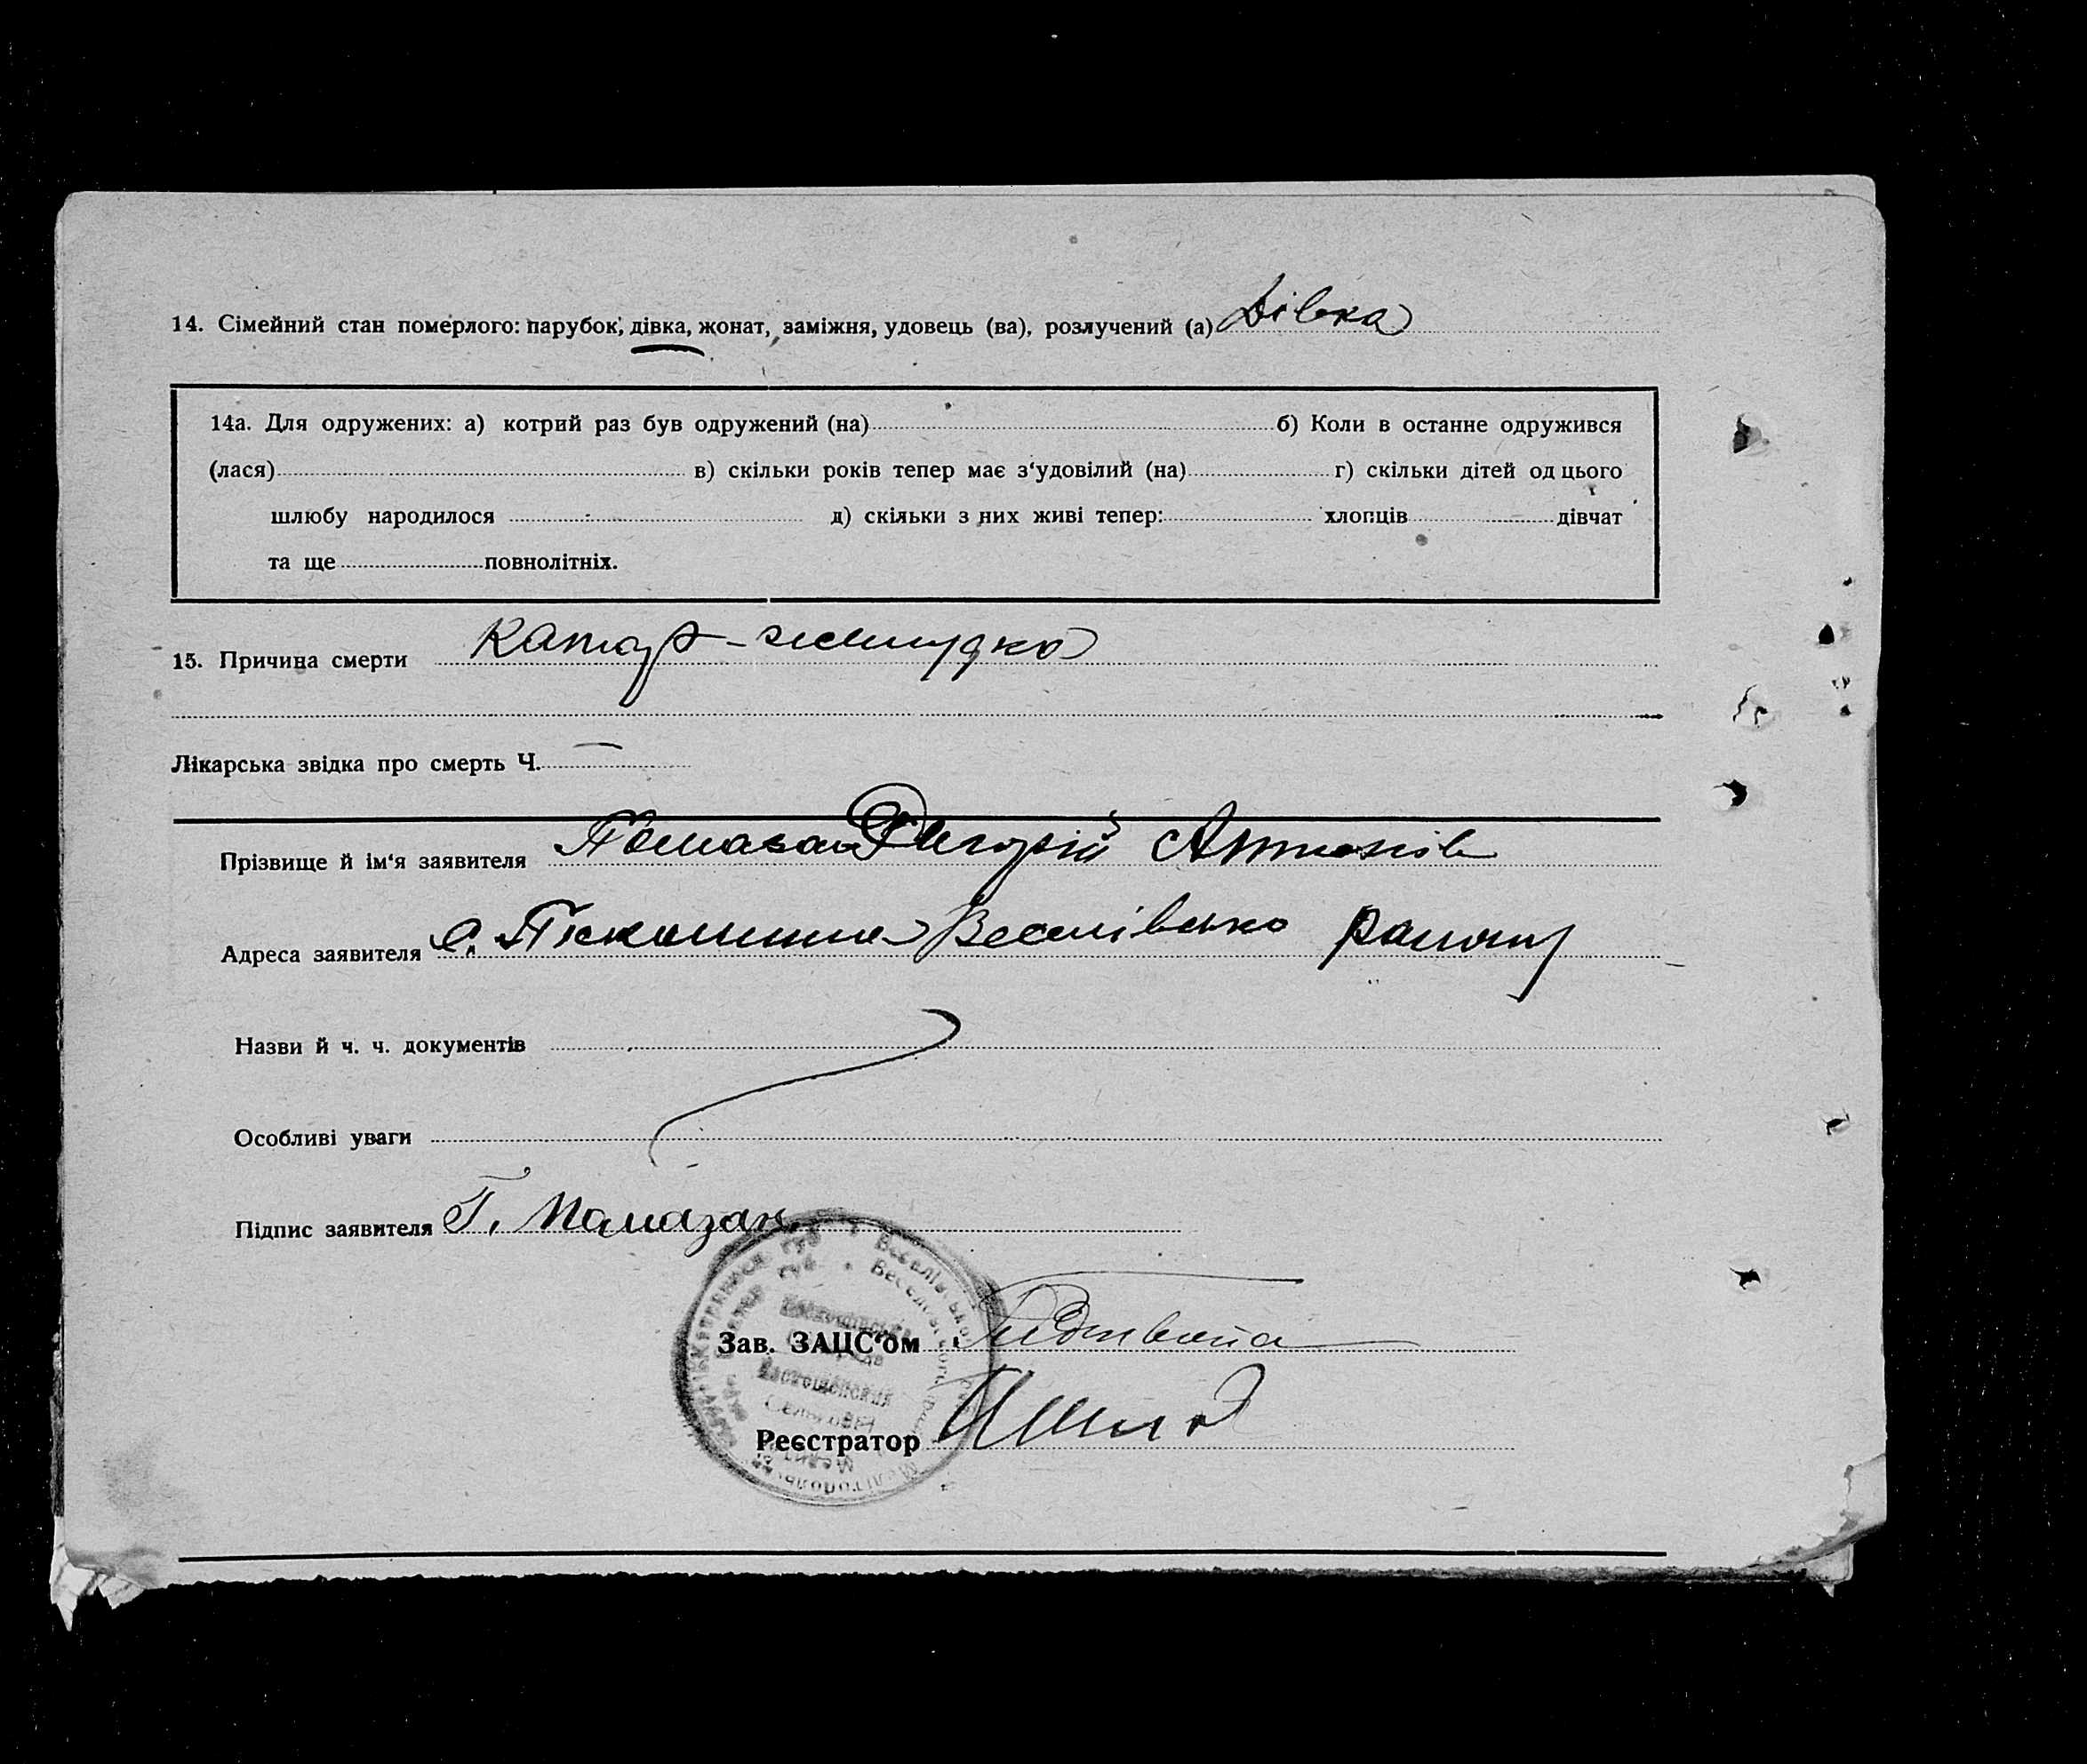 14. Сімейний стан померлого: парубок, дівка, жонат, заміжня, удовець (ва), розлучений (а) Дівка
14а. Для одружених: а) котрий раз був одружений (на) б) Коли в останне одружився
(лася) в) скільки років тепер має з‘удовілий (на) г) скільки дітей од цього
шлюбу народилося д) скільки з них живі тепер: хлопців дівчат
та ще повнолітніх.
15. Причина смерти Катар - желудка
Лікарська звідка про смерть Ч. —
Прізвище й ім‘я заявителя Помазан Григорій Антонів
Адреса заявителя с. Веселівсько району
Назви й ч. ч. документів
Особливі уваги
Підпис заявителя Г. Помазан
Зав. ЗАЦС‘ом
Реєстратор